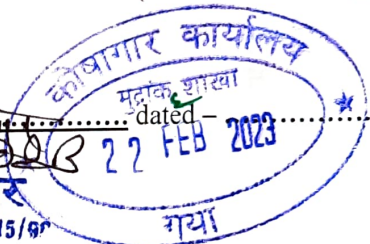 कोषागार कार्यालय
मुद्रांक शाखा
dated –
22 FEB 2023
गया